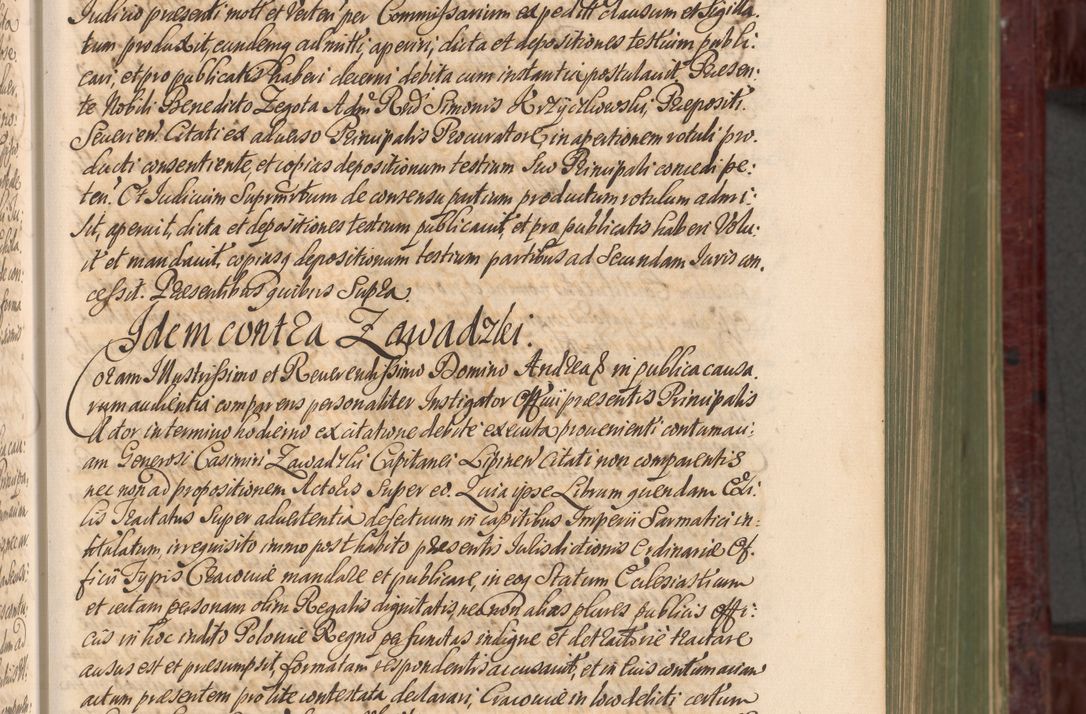 Iudicio præsenti mott et Verten' per Commissarium expeditt clausum et Sigilla:
tum produxit, eundemq admitti, aperiri, dicta et depositiones testium publi:
cari, et pro publicatis haberi decerni debita cum instantia postulavit, Præsen:
te Nobili Benedicto Zegota Admº Rndi Simonis Krzyczkowski, Præpositi
Severien' Citati ex adverso Principalis Procuratore, in apertionem rotuli pro:
ducti consentiente, et copias depositionum testium Suo Principali concedi pe:
ten'. Et Iudicium Supremum de consensu partium productum rotulum admi:
sit, aperuit, dicta et depositiones testium publicavit, et pro publicatis haberi Volu:
it et mandavit, copiasq depositionum testium partibus ad Secundam Iuris con:
cessit. Præsentibus quibus Supra.
Idem contra Zawadzki.
Coram Illustrissimo et Reverendissimo Domino Andrea S in publica causa:
rum audientia comparens personaliter Instigator Officii præsentis Principalis
Actor in termino hodierno ex citatione debite executa provenienti contumaci:
am Generosi Casimiri Zawadzki Capitanei Lipinen' Citati non comparentis
nec non ad propositionem Actoris Super eo. Quia ipse Librum quendam Exi:
lis Tractatus Super advertentia defectuum in capitibus Imperii Sarmatici in:
titulatum, irrequisito immo posthabito præsentis Iurisdictionis Ordinariæ Of:
ficii Typis Cracoviæ mandare et publicare, in eoq Statum Ecclesiasticum
et certam personam olim Regalis dignitatis, nec non alias plures publicis offi:
ciis in hoc indito Poloniæ Regno perfunctas indigne et detractorie tractare
ausus est et præsumpsit, formatam respondentis accusavit, et in Eius contumaciam
actum præsentem pro lite contestata declarari, Cracoviæ in loco delicti certum